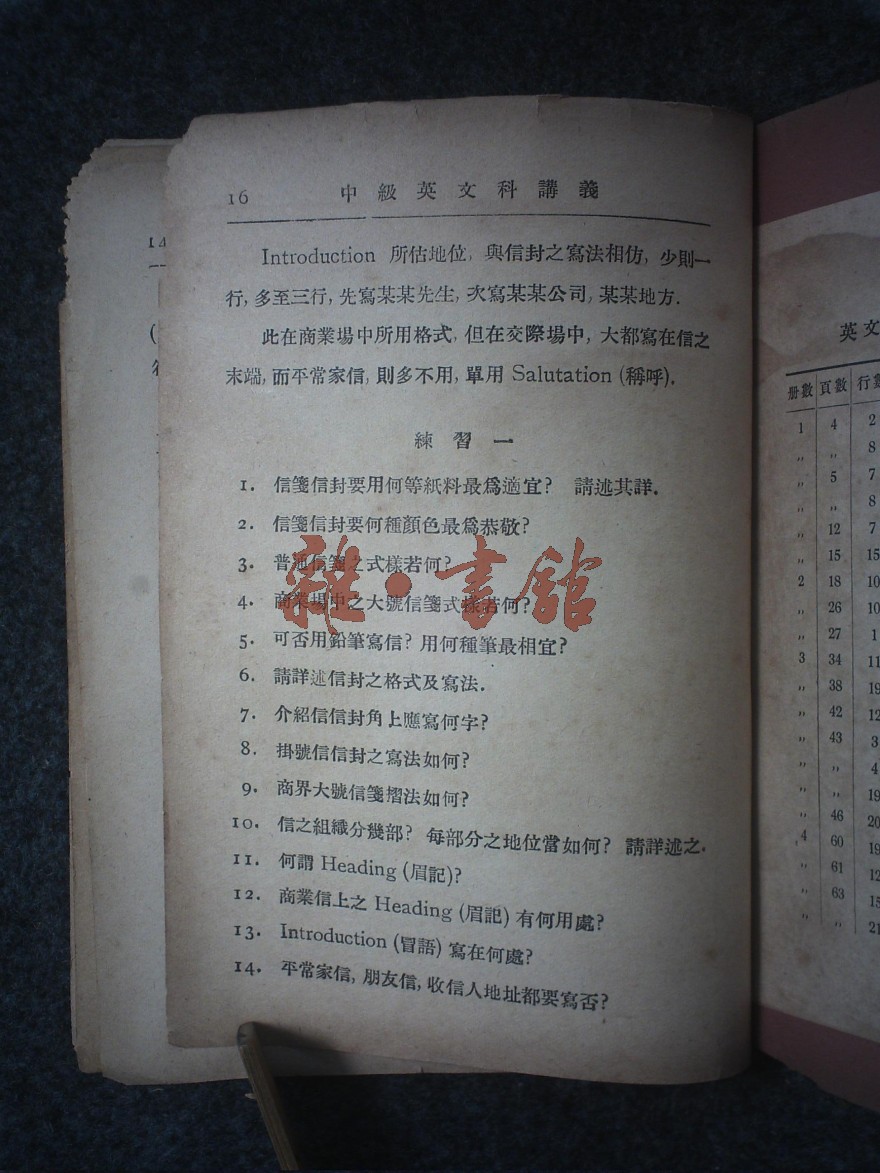 16 中級英文科講義
Introduction 所佔地位, 與信封之寫法相仿, 少則一
行, 多至三行, 先寫某某先生, 次寫某某公司, 某某地方.
此在商業場中所用格式, 但在交際場中, 大都寫在信之
末端, 而平常家信, 則多不用, 單用 Salutation (稱呼).
練習一
1. 信箋信封要用何等紙料最爲適宜? 請述其詳.
2. 信箋信封要何種顏色最爲恭敬?
3. 普通信箋之式樣若何?
4. 商業場中之大號信箋式樣若何?
5. 可否用鉛筆寫信? 用何種筆最相宜?
6. 請詳述信封之格式及寫法.
7. 介紹信信封角上應寫何字?
8. 掛號信信封之寫法如何?
9. 商界大號信箋摺法如何?
10. 信之組織分幾部? 每部分之地位當如何? 請詳述之.
11. 何謂 Heading (眉記)?
12. 商業信上之 Heading (眉記) 有何用處?
13. Introduction (冒語) 寫在何處?
14. 平常家信, 朋友信, 收信人地址都要寫否?
雜·書館
14
(
英文
册數 頁數 行數
1 4 2
,, ,, 8
,, 5 7
,, ,, 8
,, 12 7
,, 15 15
2 18 10
,, 26 10
,, 27 1
3 34 11
,, 38 19
,, 42 12
,, 43 3
,, ,, 4
,, ,, 19
,, 46 20
4 60 19
,, 61 12
,, 63 15
,, ,, 21